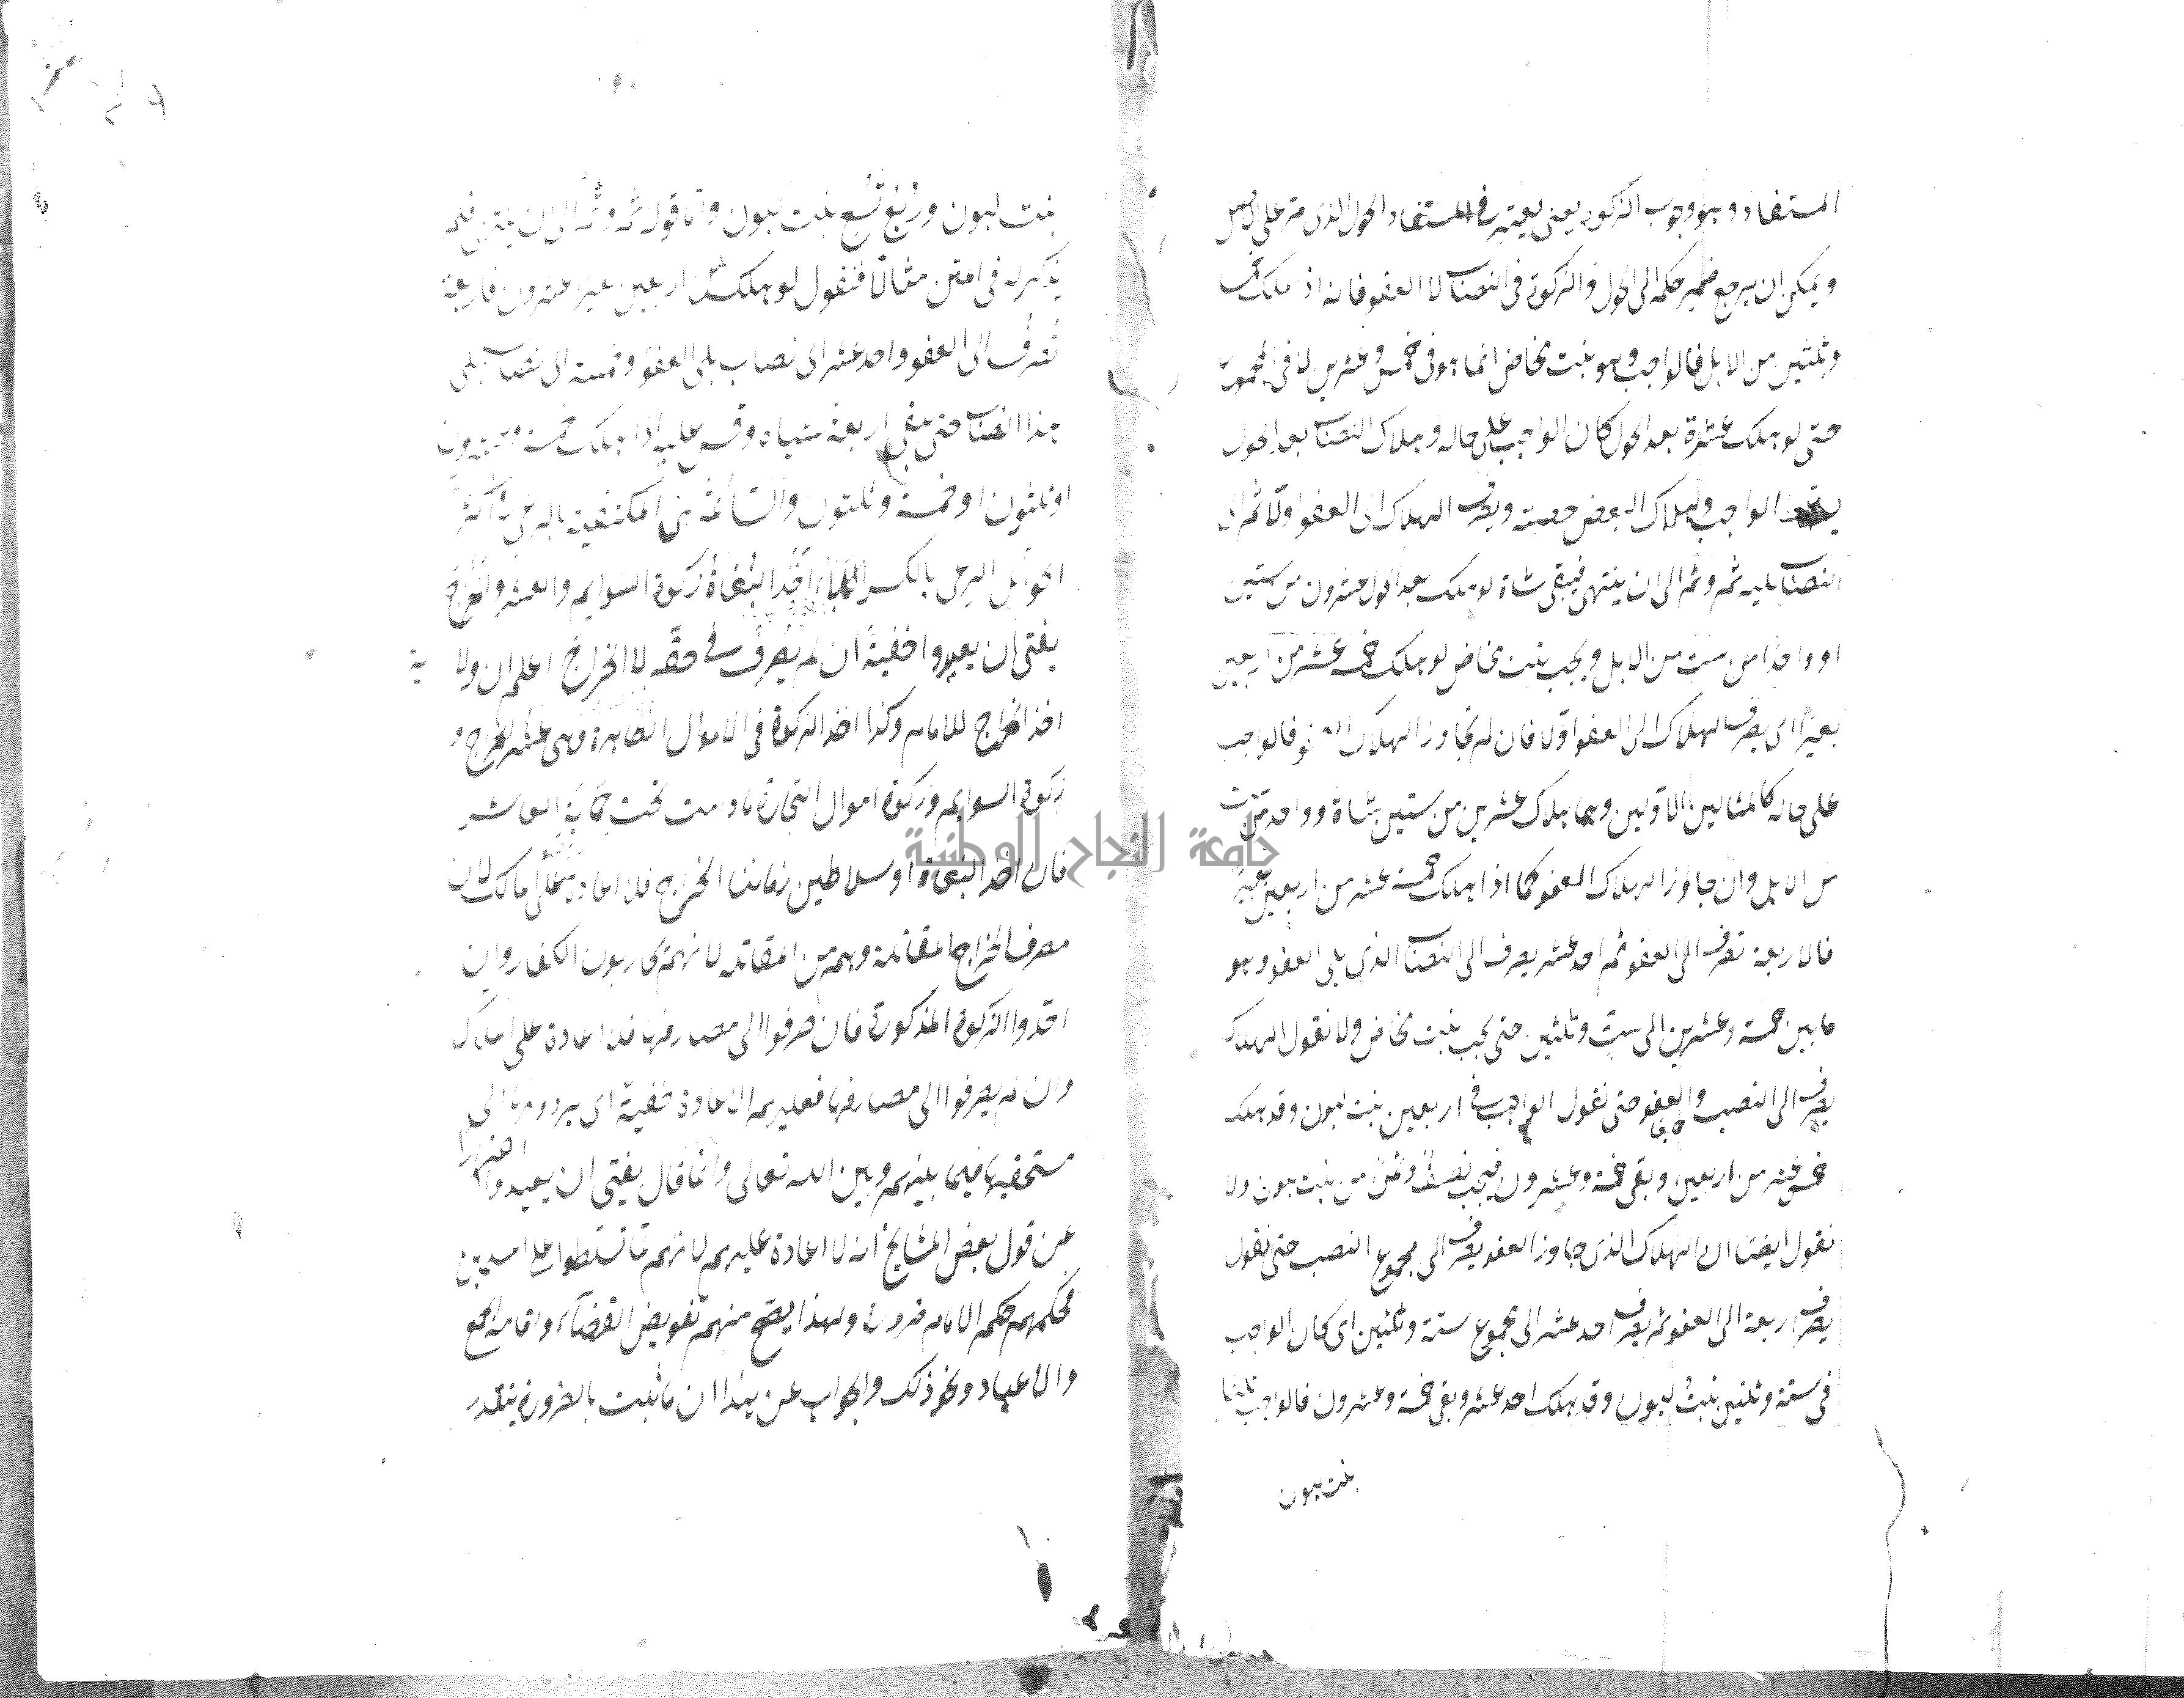 المستفاد وهو وجوب الزكوة يعنى يعتبر فى المستفاد الحول الذى مر على الاصل
ويمكن ان يرجع ضمير حكمه الى الحول والزكوة فى النصاب لا العفو فانه اذا ملك خمسا
وثلثين من الابل فالواجب وهو بنت مخاض انما هو فى خمس وعشرين لا فى المجموع
حتى لو هلك عشرة بعد الحول كان الواجب على حاله وهلاك النصاب بعد الحول
يسقط الواجب وهلاك البعض حصته ويصرف الهلاك الى العفو اولا ثم الى
النصاب يليه ثم وثم الى ان ينتهى فيبقى شاة لو هلك بعد الحول عشرون من ستين
او واحدا من ست من الابل ويجب بنت مخاض لو هلك خمسة عشر من اربعين
بعيرا اى يصرف الهلاك الى العفو اولا فان لم يجاوز الهلاك العفو فالواجب
على حاله كالمثالين الاولين وهما هلاك عشرين من ستين شاة وواحد من ست
من الابل وان جاوز الهلاك العفو كما اذا هلك خمسة عشر من اربعين بعيرا
فالاربعة تصرف الى العفو ثم احد عشر يصرف الى النصاب الذى يلى العفو وهو
ما بين خمسة وعشرين الى ست وثلثين حتى يجب بنت مخاض ولا نقول الهلاك
يصرف الى النصب والعفو حتى نقول الواجب فى اربعين بنت لبون وقد هلك
خمسة عشر من اربعين وبقى خمسة وعشرون فيجب نصف وثمن من بنت لبون ولا
نقول ايضا ان الهلاك الذى جاوز العفو يصرف الى مجموع النصب حتى نقول
يصرف اربعة الى العفو ثم يصرف احد عشر الى مجموع ستة وثلثين اى كان الواجب
فى ستة وثلثين بنت لبون وقد هلك احد عشر وبقى خمسة وعشرون فالواجب ثلثا
بنت لبون
بنت لبون وربع تسع بنت لبون واما قوله ثم وثم الى ان ينتهى فلم
يذكر له فى المتن مثالا فنقول لو هلك من اربعين بعيرا عشرون فاربعة
تصرف الى العفو واحد عشر الى نصاب يلى العفو وخمسة الى نصاب يلى
هذا النصاب حتى يبقى اربعة شياه وقس عليه اذا هلك خمسة وعشرون
او ثلثون او خمسة وثلثون والسائمة هى المكتفية بالرعى فى اكثر
الحول الرعى بالكسر الكلاء اخذ البغاة زكوة السوايم والعشر والخراج
يفتى ان يعيدوا خفية ان لم يصرف فى حقه لا الخراج اعلم ان ولاية
اخذ الخراج للامام وكذا اخذ الزكوة فى الاموال الظاهرة وهى عشر الخارج و
زكوة السوايم وزكوة اموال التجارة ما دامت تحت حماية العاشر
فان اخذ البغاة او سلاطين زماننا الخراج فلا اعادة على الملاك لان
مصرف الخراج المقاتلة وهم من المقاتلة لانهم يحاربون الكفار وان
اخذوا الزكوة المذكورة فان صرفوا الى مصارفها فلا اعادة على الملاك
وان لم يصرفوا الى مصارفها فعليهم الاعادة خفية اى يردونها الى
مستحقيها فيما بينهم وبين الله تعالى وانما قال يفتى ان يعيدوا احترازا
عن قول بعض المشايخ انه لا اعادة عليهم لانهم لما تسلطوا على المسلمين
فحكمهم حكم الامام ضرورة ولهذا يصح منهم تفويض القضاء واقامة الجمع
والاعياد ونحو ذلك والجواب عن هذا ان ما ثبت بالضرورة يتقدر
جامعة النجاح الوطنية